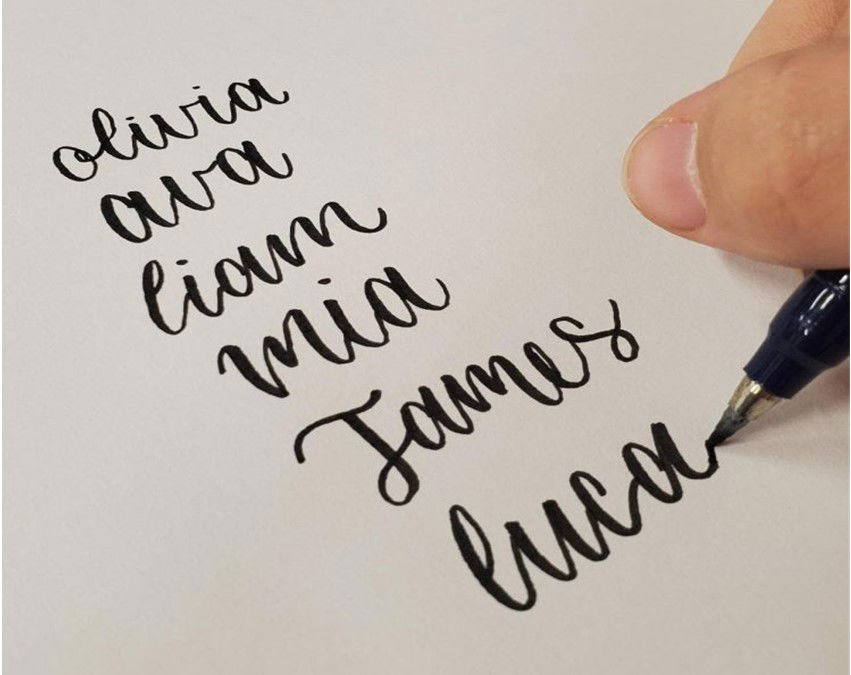 olivia
ava
liam
mia
James
luca